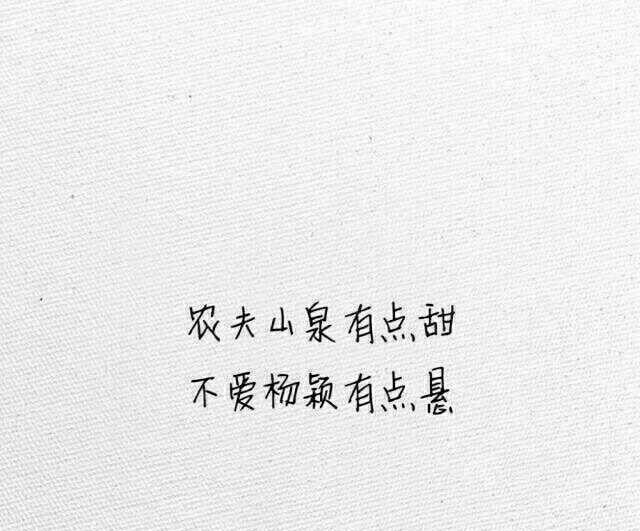 农夫山泉有点甜
不爱杨颖有点悬